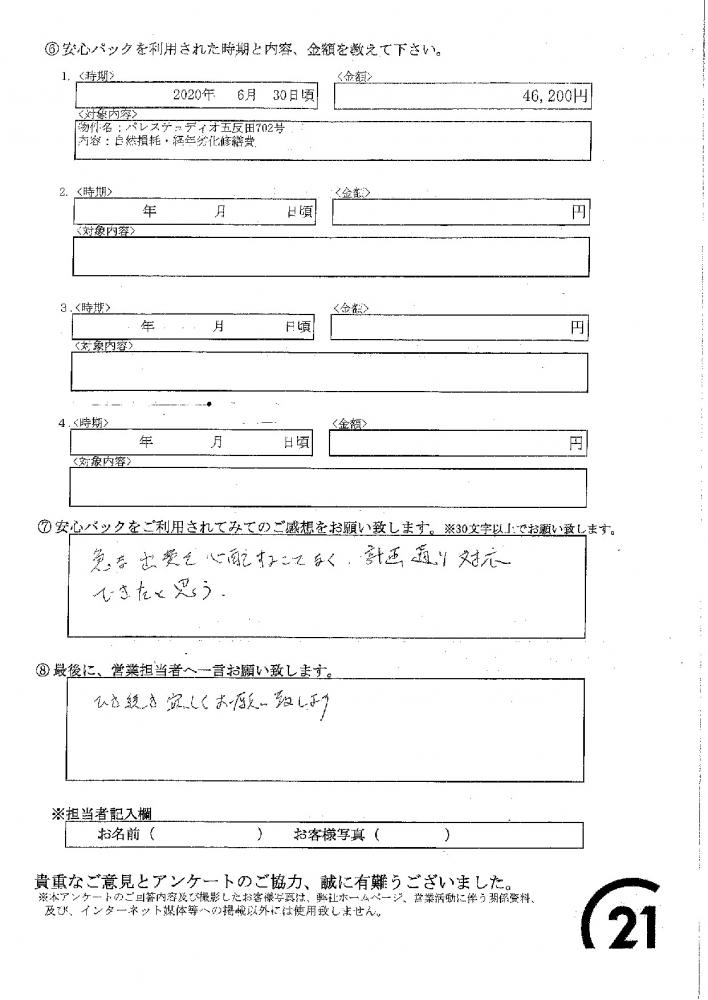 ⑥安心パックを利用された時期と内容、金額を教えて下さい。
1. <時期> <金額>
2020年 6月 30日頃 46,200円
<対象内容>
物件名：パレステュディオ五反田702号
内容：自然損耗・経年劣化修繕費
2. <時期> <金額>
年 月 日頃 円
<対象内容>
3. <時期> <金額>
年 月 日頃 円
<対象内容>
4. <時期> <金額>
年 月 日頃 円
<対象内容>
⑦安心パックをご利用されてみてのご感想をお願い致します。※30文字以上でお願い致します。
急な出費を心配することなく、計画通り対応
できたと思う.
⑧最後に、営業担当者へ一言お願い致します。
ひき続き宜しくお願い致します
※担当者記入欄
お名前（ ） お客様写真（ ）
貴重なご意見とアンケートのご協力、誠に有難うございました。
※本アンケートのご回答内容及び撮影したお客様写真は、弊社ホームページ、営業活動に伴う関係資料、
及び、インターネット媒体等への掲載以外には使用致しません。
21